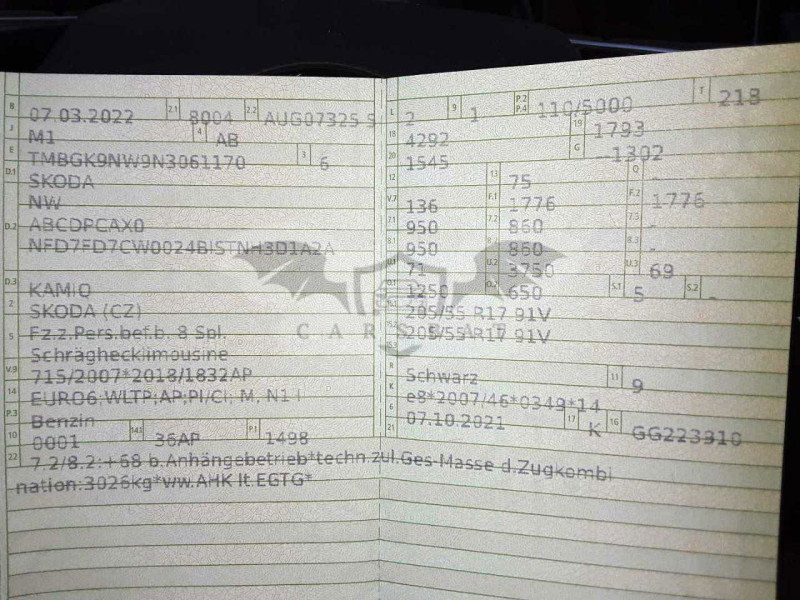 B 07.03.2022 2.1 8004 2.2 AUG07325 S
J M1 4 AB
E TMBGK9NW9N3061170 3 6
D.1 SKODA
NW
D.2 ABCDPCAX0
NFD7FD7CW0024BISTNH3D1A2A
D.3 KAMIQ
2 SKODA (CZ)
5 Fz.z.Pers.bef.b. 8 Spl.
Schräghecklimousine
V.9 715/2007*2018/1832AP
14 EURO6;WLTP;AP;PI/CI; M, N1 I
P.3 Benzin
10 0001 14.1 36AP P.1 1498
L 2 9 1 P.2 P.4 110/5000 T 213
18 4292 19 1793
20 1545 G --1302
12 - 13 75 Q -
V.7 136 F.1 1776 F.2 1776
7.1 950 7.2 860 7.3 -
8.1 950 860 8.3 -
71 U.2 3750 U.3 69
O.1 1250 O.2 650 S.1 5 S.2 -
205/55 R17 91V
205/55 R17 91V
R Schwarz 11 9
K e8*2007/46*0349*14
6 07.10.2021 17 K 16 GG223910
21
22 7.2/8.2:+68 b.Anhängebetrieb*techn.zul.Ges-Masse d.Zugkombi
nation:3026kg*ww.AHK lt.EGTG*
CARS